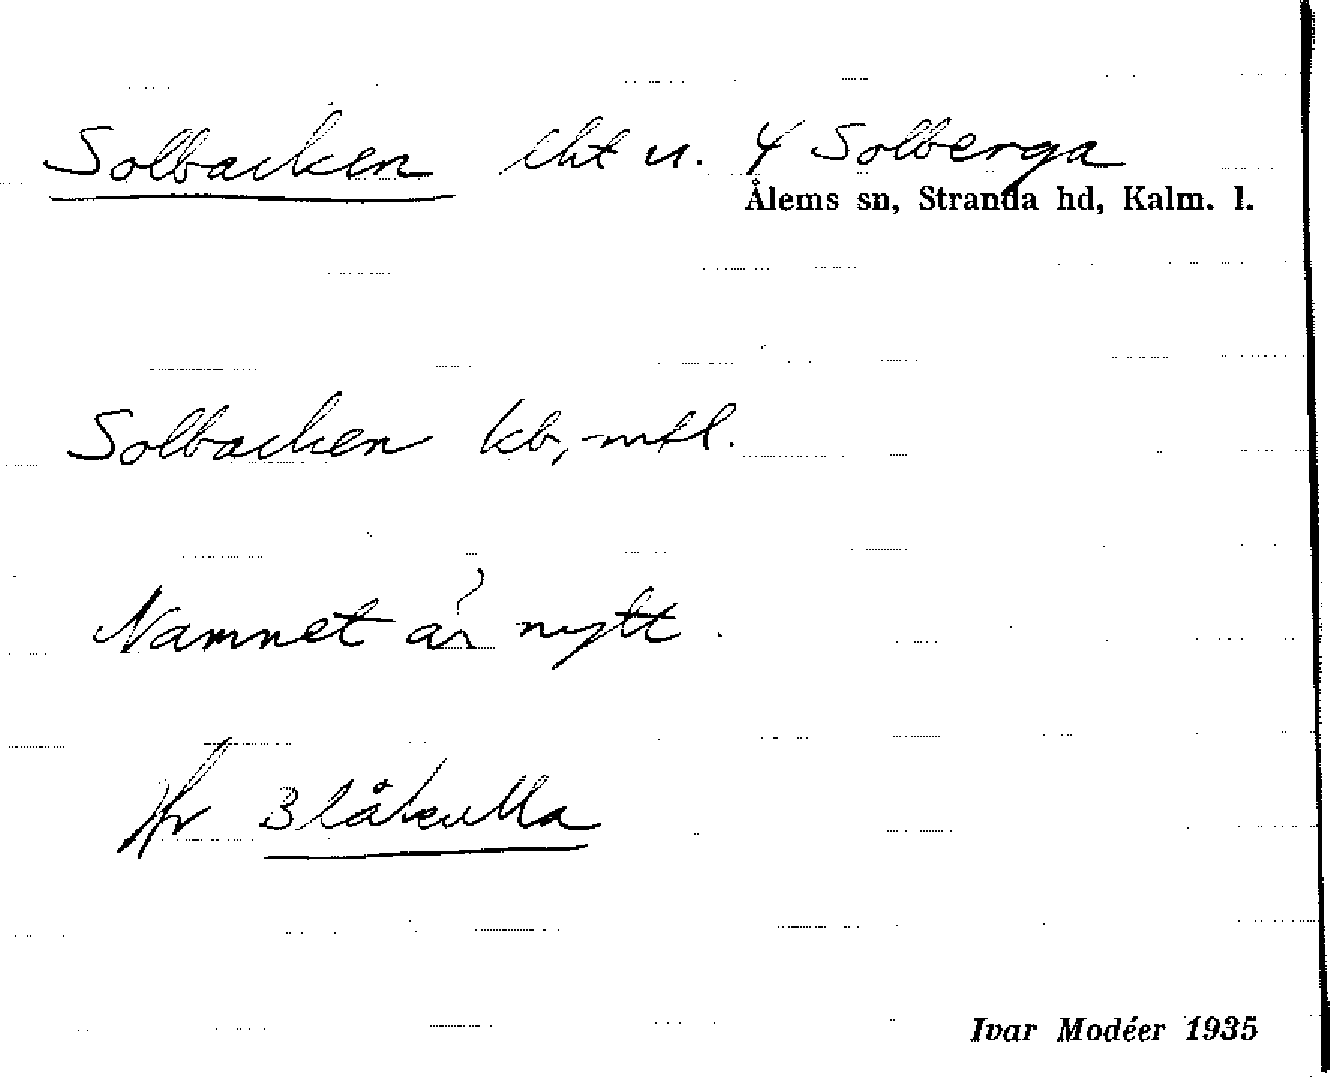 Solbacken lht u. 4 Solberga
Ålems sn, Stranda hd, Kalm. l.
Solbacken kb, mtl.
Namnet är nytt.
Jfr Blåkulla
Ivar Modéer 1935